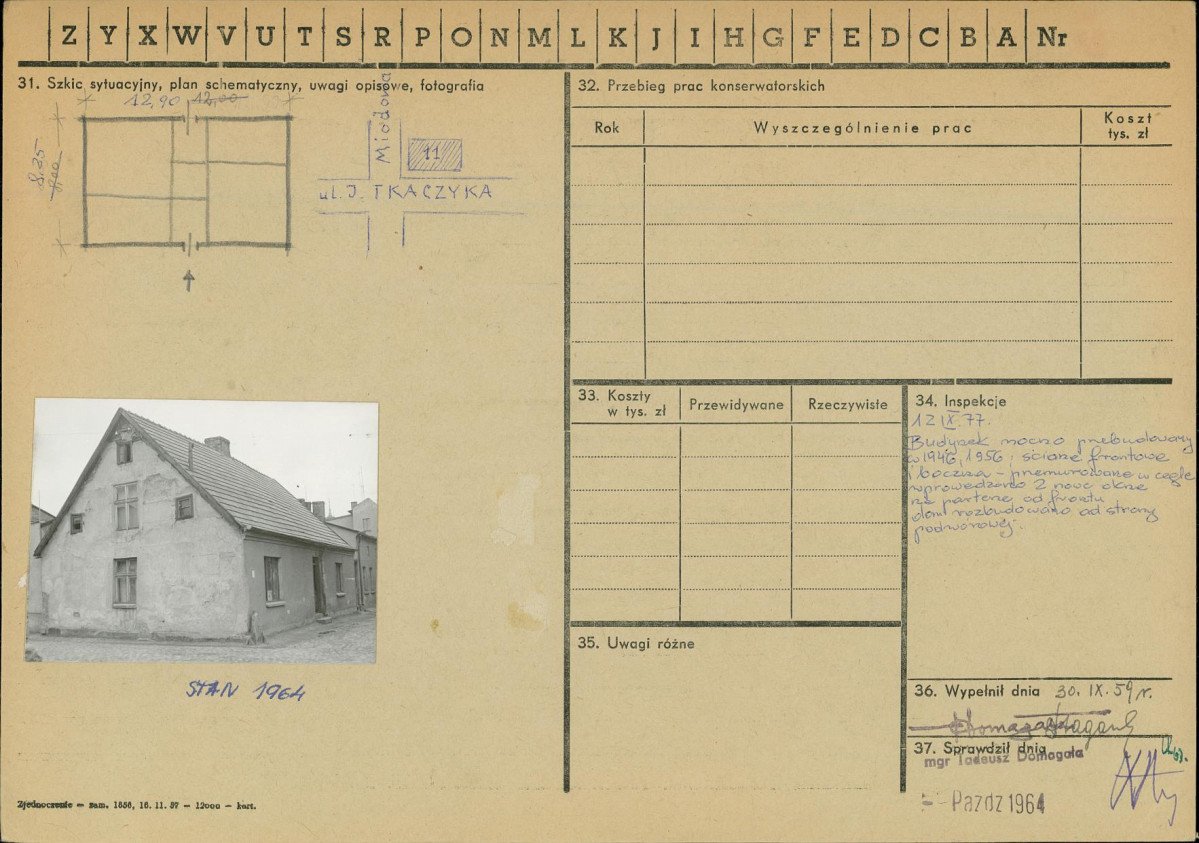 Z Y X W V U T S R P O N M L K J I H G F E D C B A Nr
31. Szkic sytuacyjny, plan schematyczny, uwagi opisowe, fotografia
12,90 12,00
8,25
8,00
Miodowa
11
ul. J. TKACZYKA
STAN 1964
Zjednoczenie — zam. 1856, 16. 11. 57 — 12000 — kart.
32. Przebieg prac konserwatorskich
Rok
Wyszczególnienie prac
Koszt
tys. zł
33. Koszty
w tys. zł
Przewidywane
Rzeczywiste
34. Inspekcje
12 IX 77.
Budynek mocno przebudowany
w 1946, 1956, ściane frontowe
i boczna - przemurowane w cegle
wprowedzono 2 nowe okna
na parterze od frontu
dom rozbudowano od strony
podwórowej.
35. Uwagi różne
36. Wypełnił dnia 30. IX. 59 r.
37. Sprawdził dnia
mgr Tadeusz Domagała
Paźdz 1964